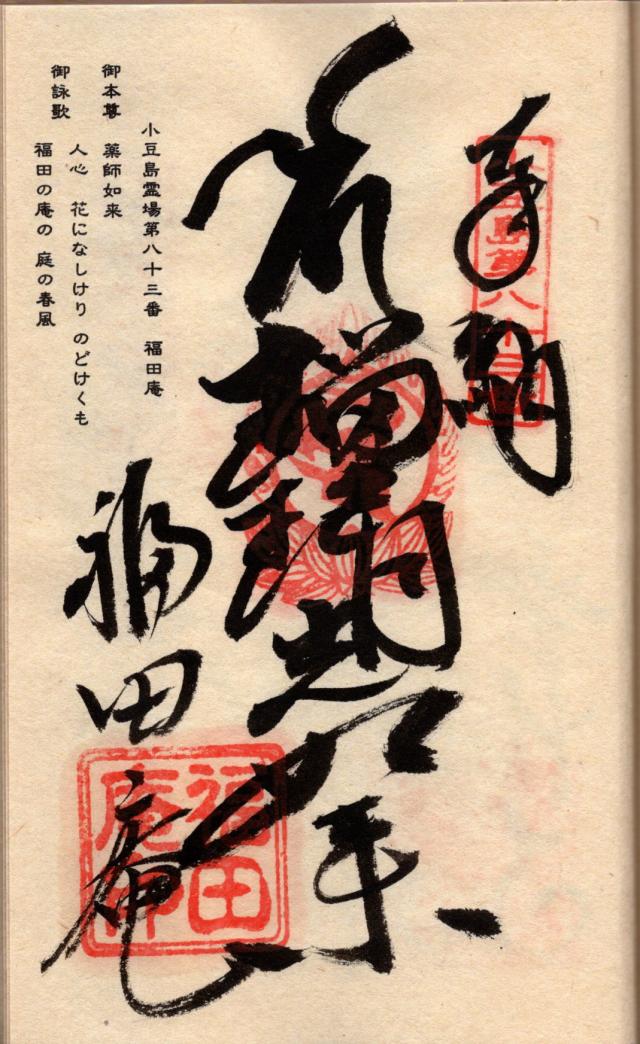 奉納
小豆島第八十三番
福田庵
福田庵印
小豆島霊場第八十三番 福田庵
御本尊 薬師如来
御詠歌 人心 花になしけり のどけくも
福田の庵の 庭の春風